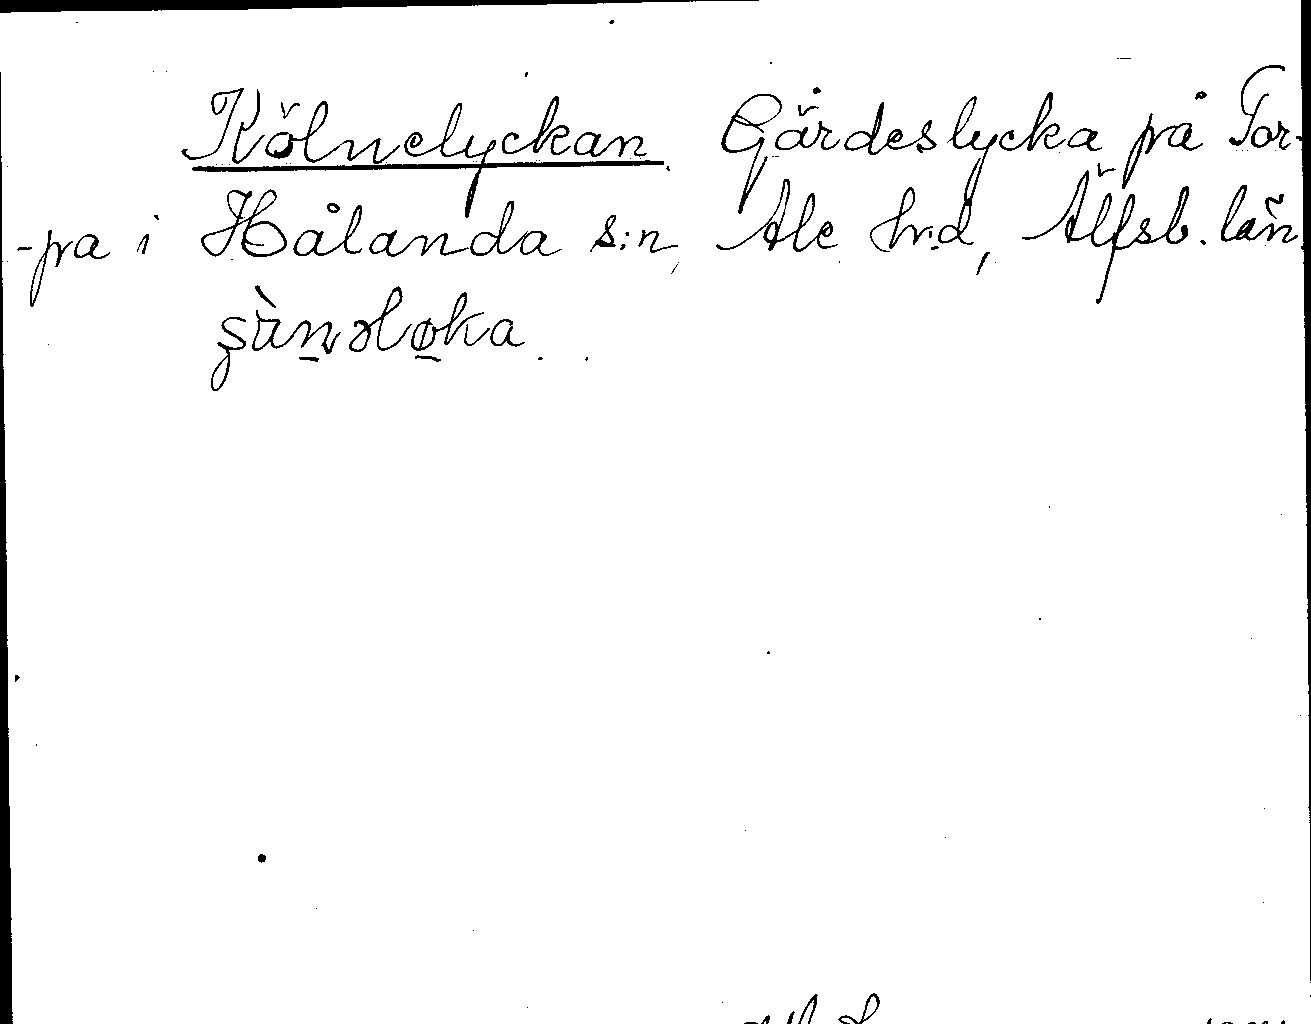 Kölnelyckan. Gärdeslycka på Tor-
-pa i Hålanda s:n, Ale hr.d, Älfsb. län.